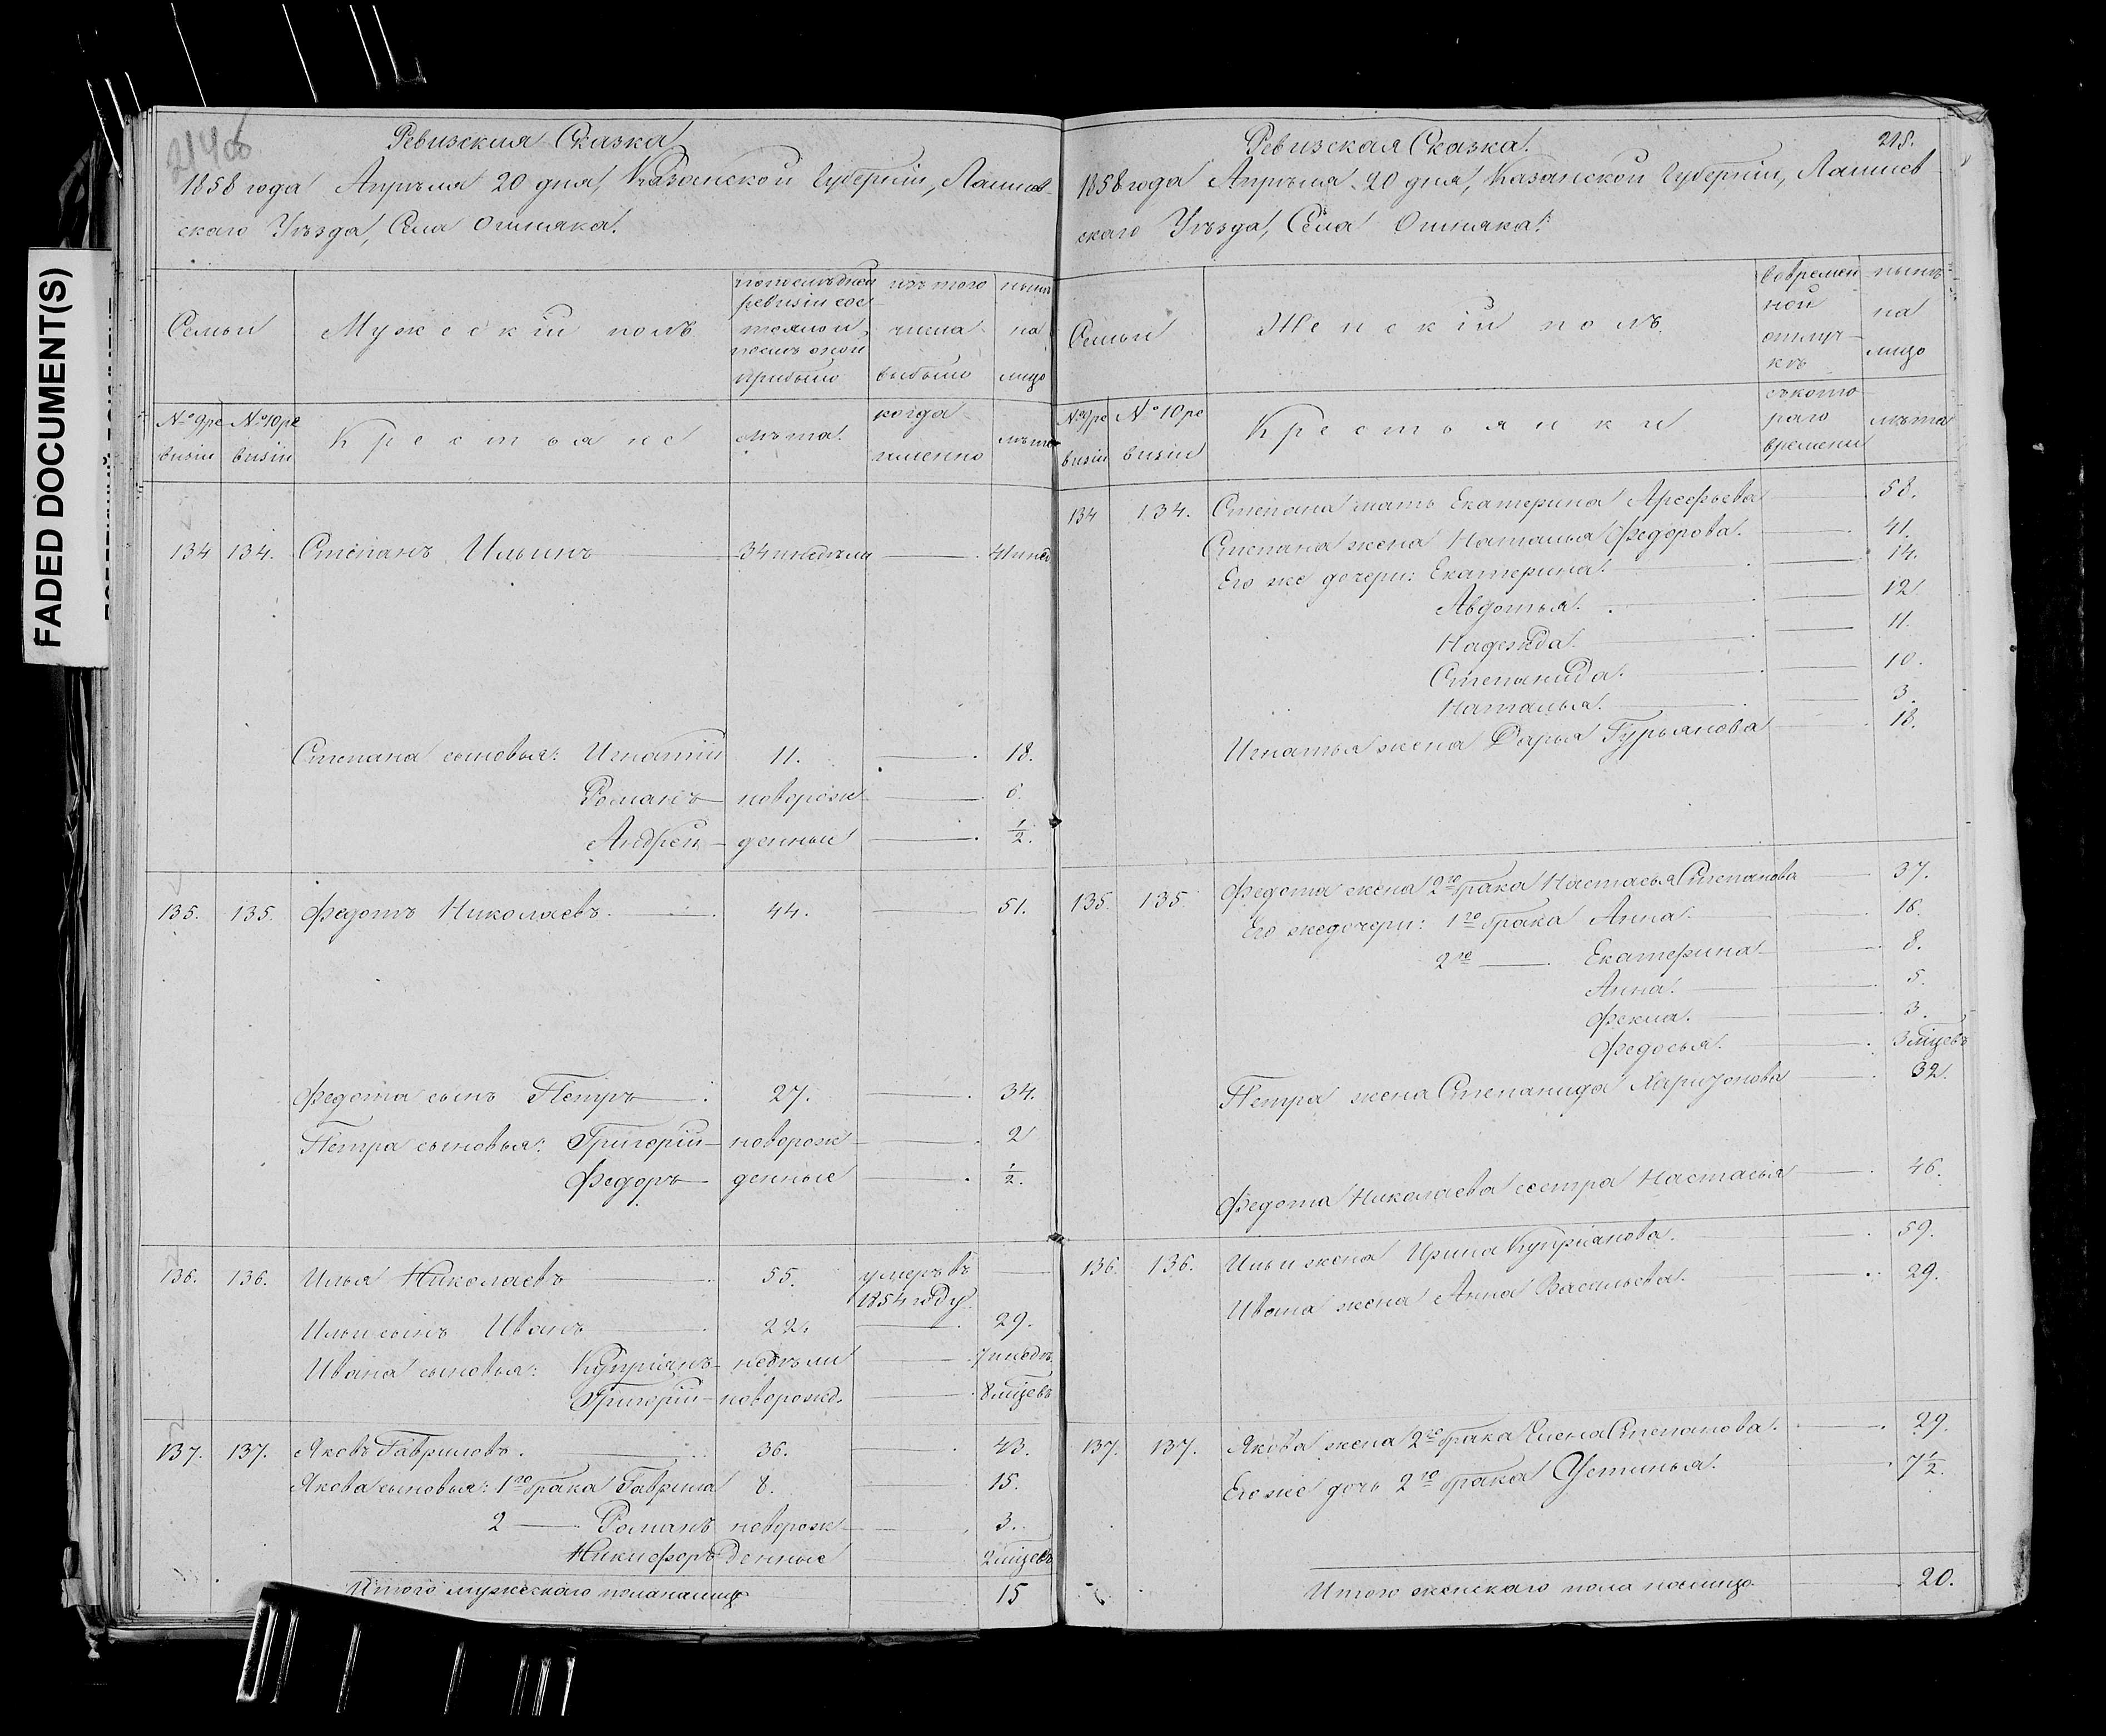 FADED DOCUMENT(S)
214об
Ревизская Сказка
1858 года Апрѣля 20 дня, Казанской Губерніи, Лаишев-
скаго Уѣзда, Села Ошняка.
Семьи
Мужескій полъ
по последней ревизіи состояло и послѣ оной прибыло
изъ того числа выбыло
нынѣ на лицо
№ 9 ре визіи
№ 10 ре визіи
Крестьяне
лѣта.
когда именно
лѣта
134 134. Степанъ Ильинъ 34 и недѣли 41 и нед.
Степана сыновья: Игнатій 11. 18.
Романъ новорож 6.
Андрей денные 1/2.
135. 135. Федотъ Николаевъ. 44. 51.
Федота сынъ Петръ 27. 34.
Петра сыновья: Григорій новорож 2
Федоръ денные 1/2.
136. 136. Илья Николаевъ 55. умеръ въ 1854 году
Ильи сынъ Иванъ 22. 29.
Ивана сыновья: Купріянъ недѣли 7 и недѣ.
Григорій новорожд. 8 мцевъ
137. 137. Яковъ Гавриловъ. 36. 43.
Якова сыновья: 1го брака Гаврила 8. 15.
2 Романъ новорож 3.
Никифоръ денные 2 мцевъ
Итого мужескаго пола налицо 15
Ревизская Сказка. 215.
1858 года Апрѣля 20 дня, Казанской Губерніи, Лаишев-
скаго Уѣзда, Села Ошняка.
Семьи
Женскій полъ
во времен ной отлуч кѣ
нынѣ на лицо
№ 9 ре визіи
№ 10 ре визіи
Крестьянки
съ кото раго времени
лѣта
134 134. Степана мать Екатерина Арефьева 58.
Степана жена Наталья Федорова. 41.
Его же дочери: Екатерина. 14.
Авдотья. 12
Надежда. 11.
Степанида. 10.
Наталья. 3.
Игнатья жена Дарья Гурьянова 18.
135. 135 Федота жена 2го брака Настасья Степанова 37.
Его же дочери: 1го брака Анна. 16.
2го Екатерина 8.
Анна. 5.
Фекла. 3.
Федосья. 3 мцевъ
Петра жена Степанида Харитонова 32.
Федота Николаева сестра Настасья 46.
136. 136. Ильи жена Ирина Купріянова. 59.
Ивана жена Анна Васильева. 29.
137. 137. Якова жена 2го брака Елена Степанова. 29.
Его же дочь 2го брака Устинья. 7 1/2.
Итого женскаго пола налицо. 20.